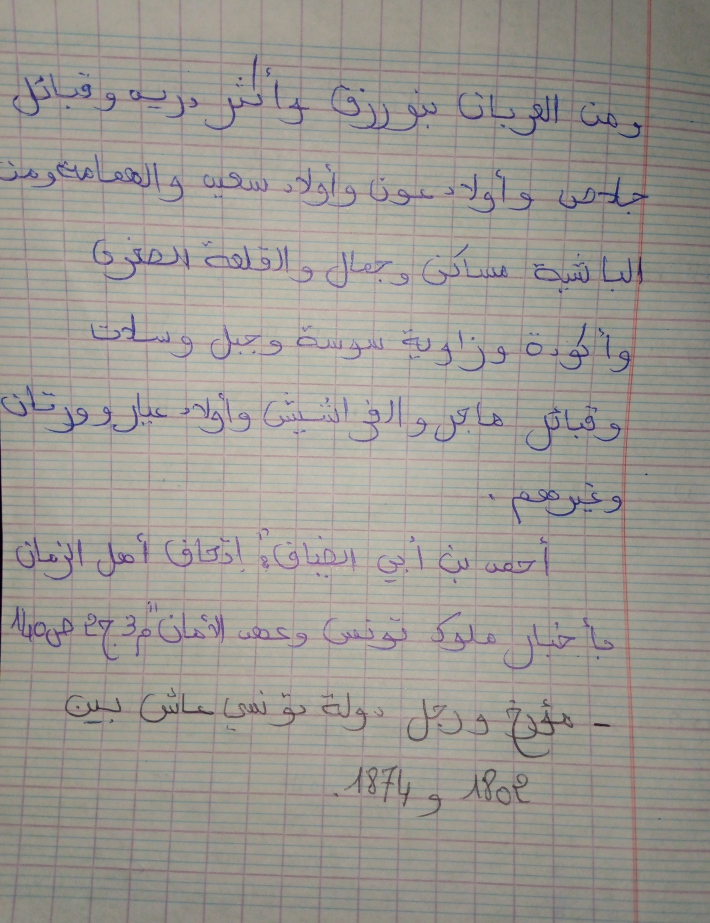 ومن العربان بنو رزق وأكثر دريد وقبائل
جلاص وأولاد عون وأولاد سعيد والهمامة ومن
الباشية مساكن وجمال والقلعة الصغرى
وأكودة وزاوية سوسة وجبل وسلات
وقبائل ماجر والفراشيش وأولاد عيار وورتان
وغيرهم .
أحمد بن أبي الضياف: "إتحاف أهل الزمان
بأخبار ملوك تونس وعهد الأمان" م3 ج2 ص140
- مؤرخ ورجل دولة تونسي عاش بين
1802 و 1874.